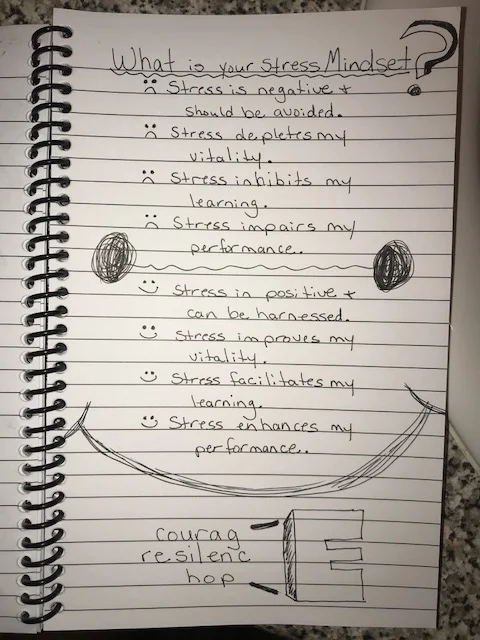 What is your Stress Mindset?
Stress is negative +
should be avoided.
Stress depletes my
vitality.
Stress inhibits my
learning.
Stress impairs my
performance..
Stress in positive +
can be harnessed.
Stress improves my
vitality.
Stress facilitates my
learning.
Stress enhances my
performance..
courag
resilenc
hop
E